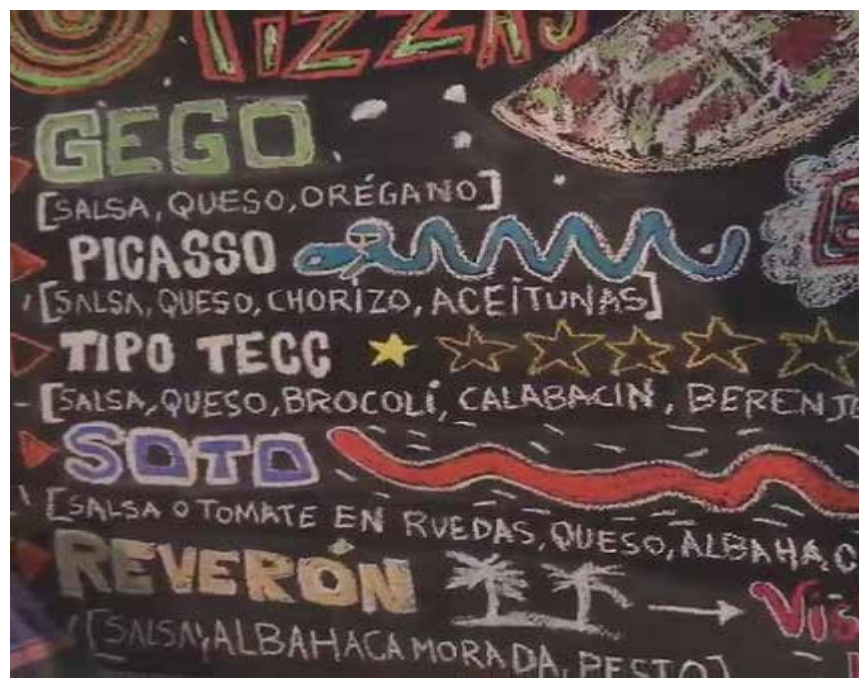 PIZZAS
GEGO
[SALSA, QUESO, ORÉGANO]
PICASSO
[SALSA, QUESO, CHORIZO, ACEITUNAS]
TIPO TECC
- [SALSA, QUESO, BROCOLÍ, CALABACIN, BERENJ
SOTO
[SALSA O TOMATE EN RUEDAS, QUESO, ALBAHAC
REVERÓN → Vis
[SALSA, ALBAHACA MORADA, PESTO]